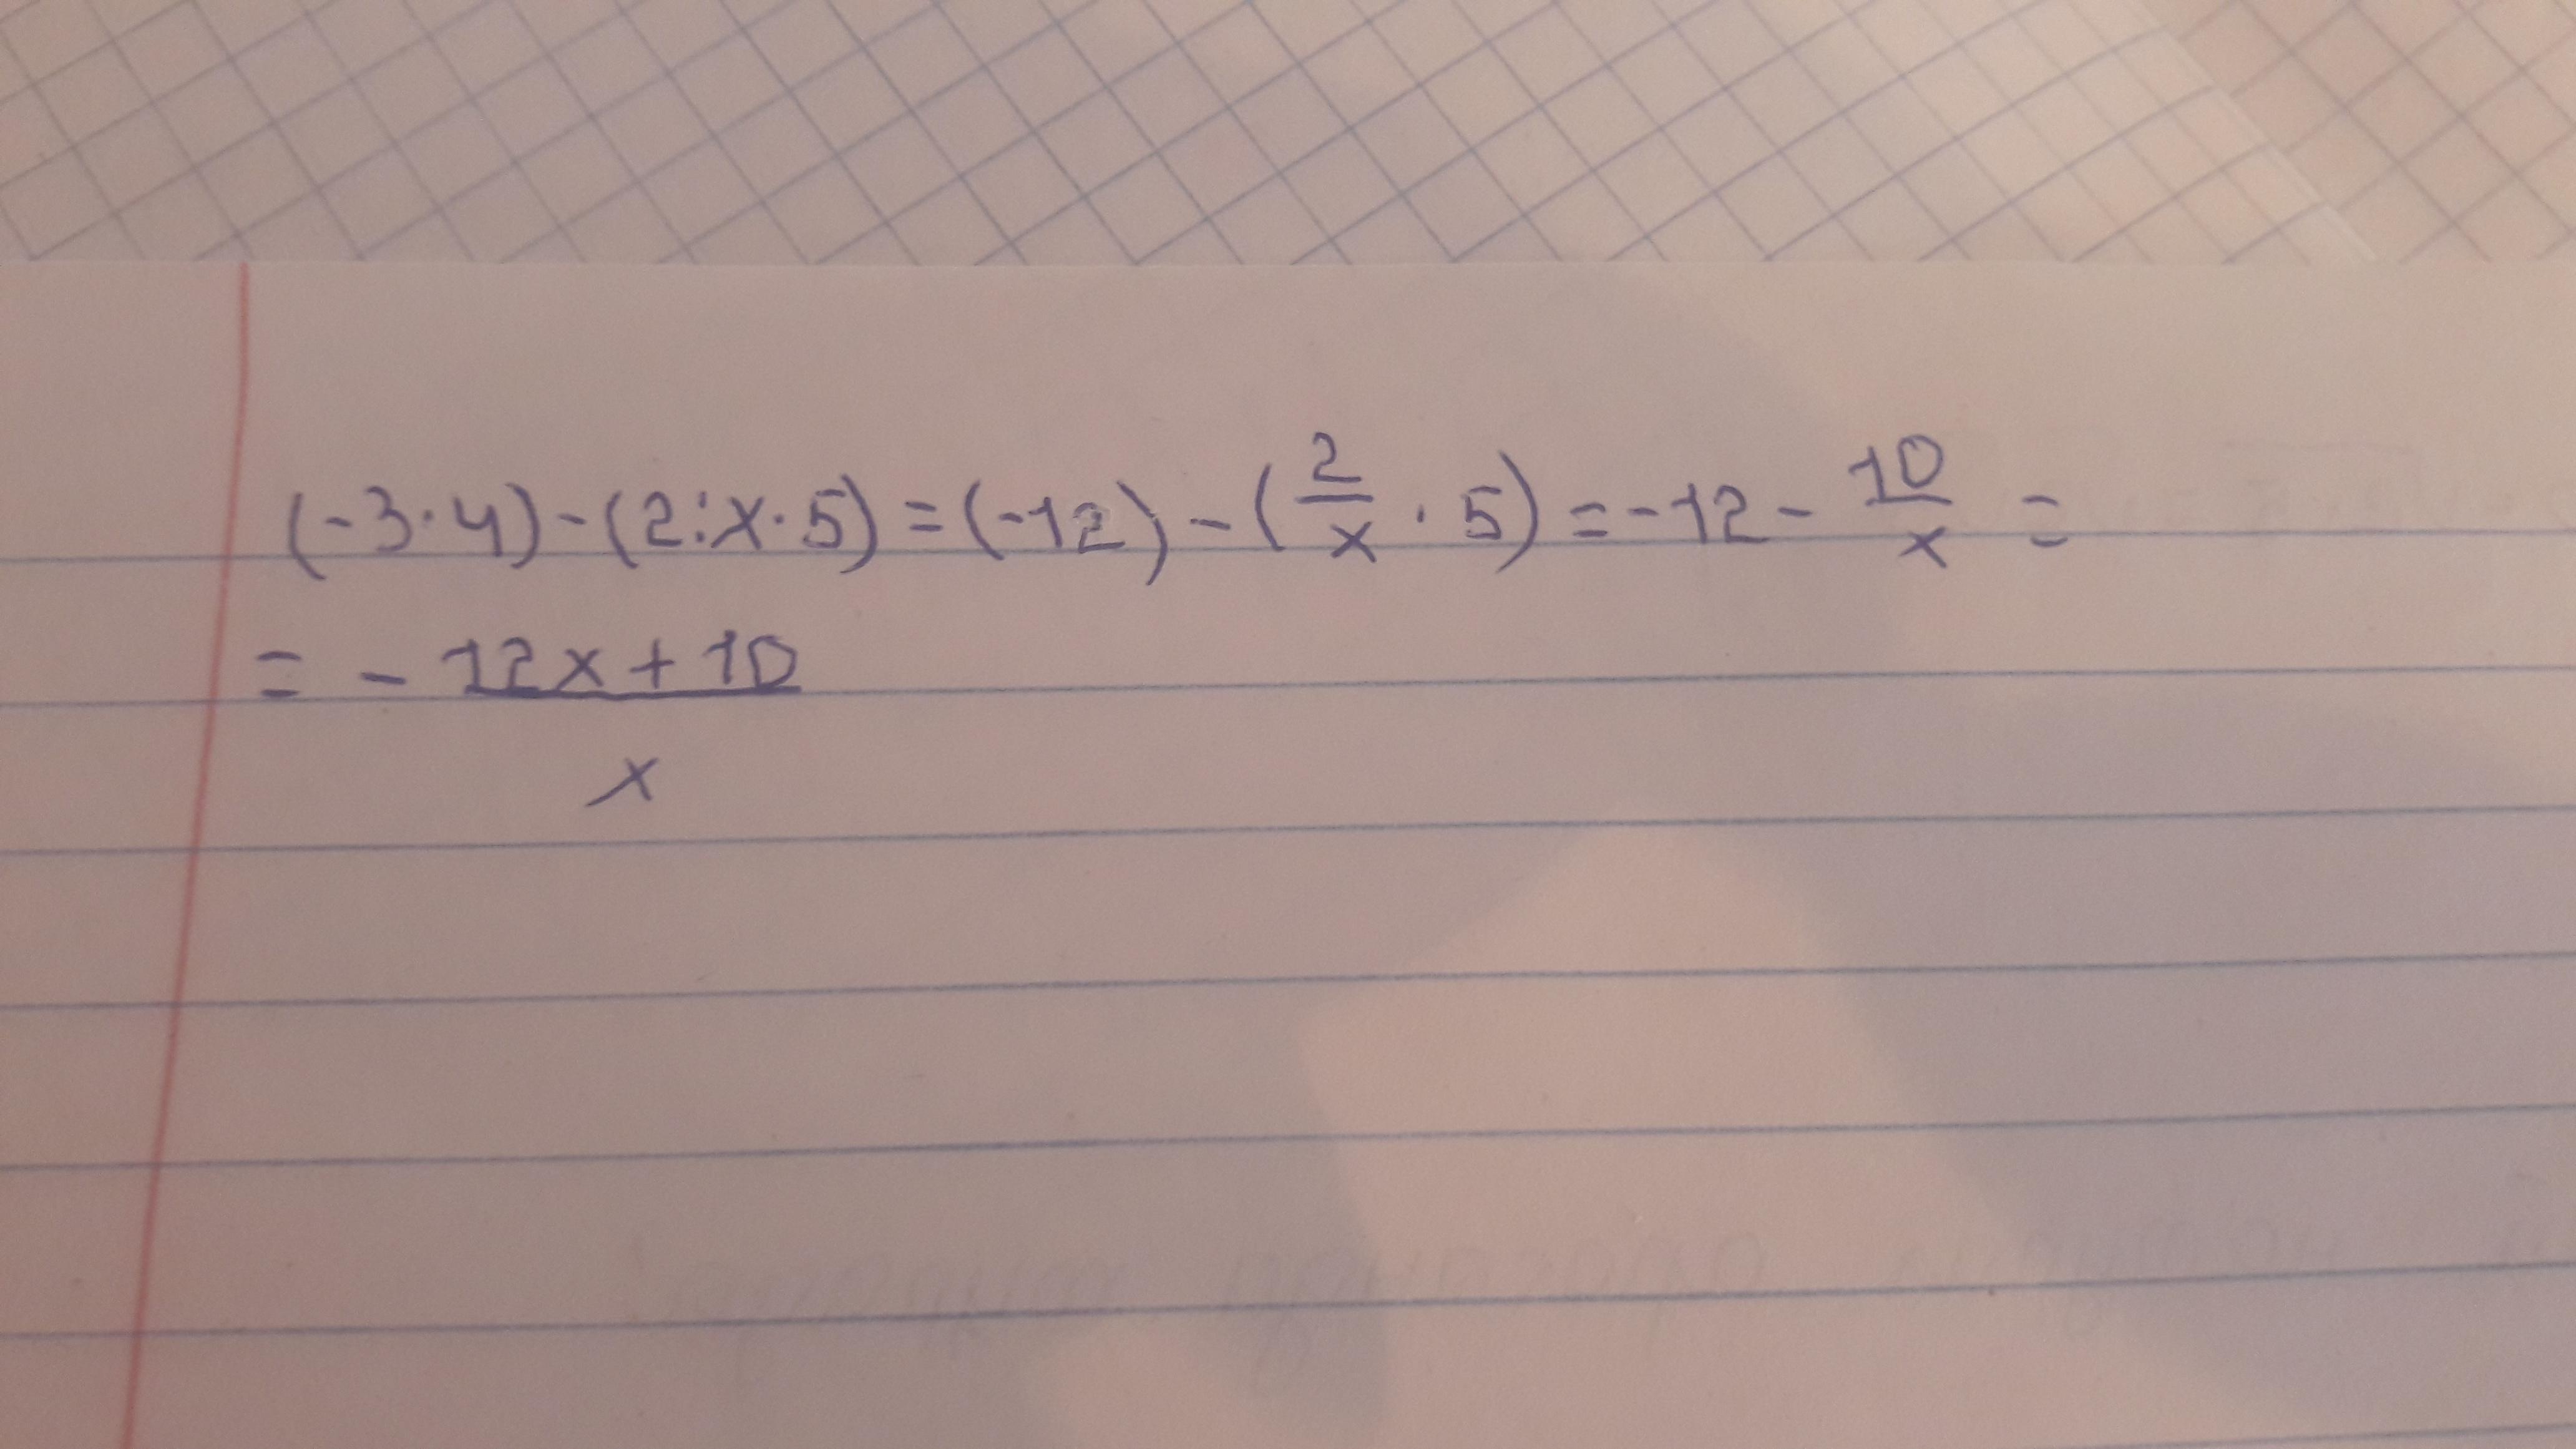 (-3·4)-(2:x·5)=(-12)-(2/x·5)=-12-10/x=
=-(12x+10)/x